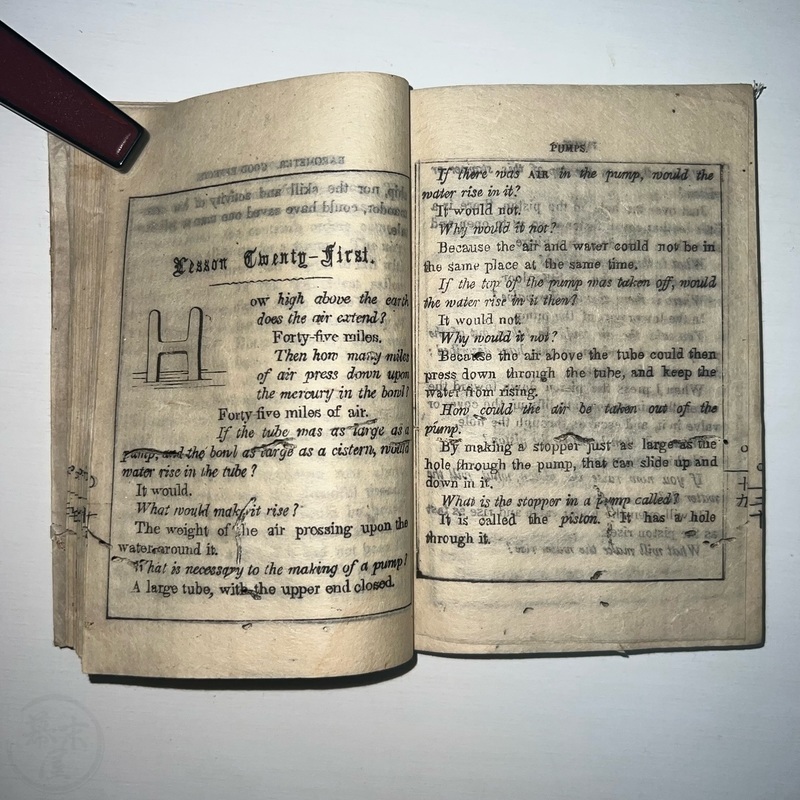 Lesson Twenty-First.
How high above the earth
does the air extend?
Forty-five miles.
Then how many miles
of air press down upon
the mercury in the bowl?
Forty-five miles of air.
If the tube was as large as a
pump, and the bowl as large as a cistern, would
water rise in the tube?
It would.
What would make it rise?
The weight of the air prossing upon the
water around it.
What is necessary to the making of a pump?
A large tube, with the upper end closed.
PUMPS.
If there was AIR in the pump, would the
water rise in it?
It would not.
Why would it not?
Because the air and water could not be in
the same place at the same time.
If the top of the pump was taken off, would
the water rise in it then?
It would not.
Why would it not?
Because the air above the tube could then
press down through the tube, and keep the
water from rising.
How could the air be taken out of the
pump.
By making a stopper just as large as the
hole through the pump, that can slide up and
down in it.
What is the stopper in a pump called?
It is called the piston. It has a hole
through it.